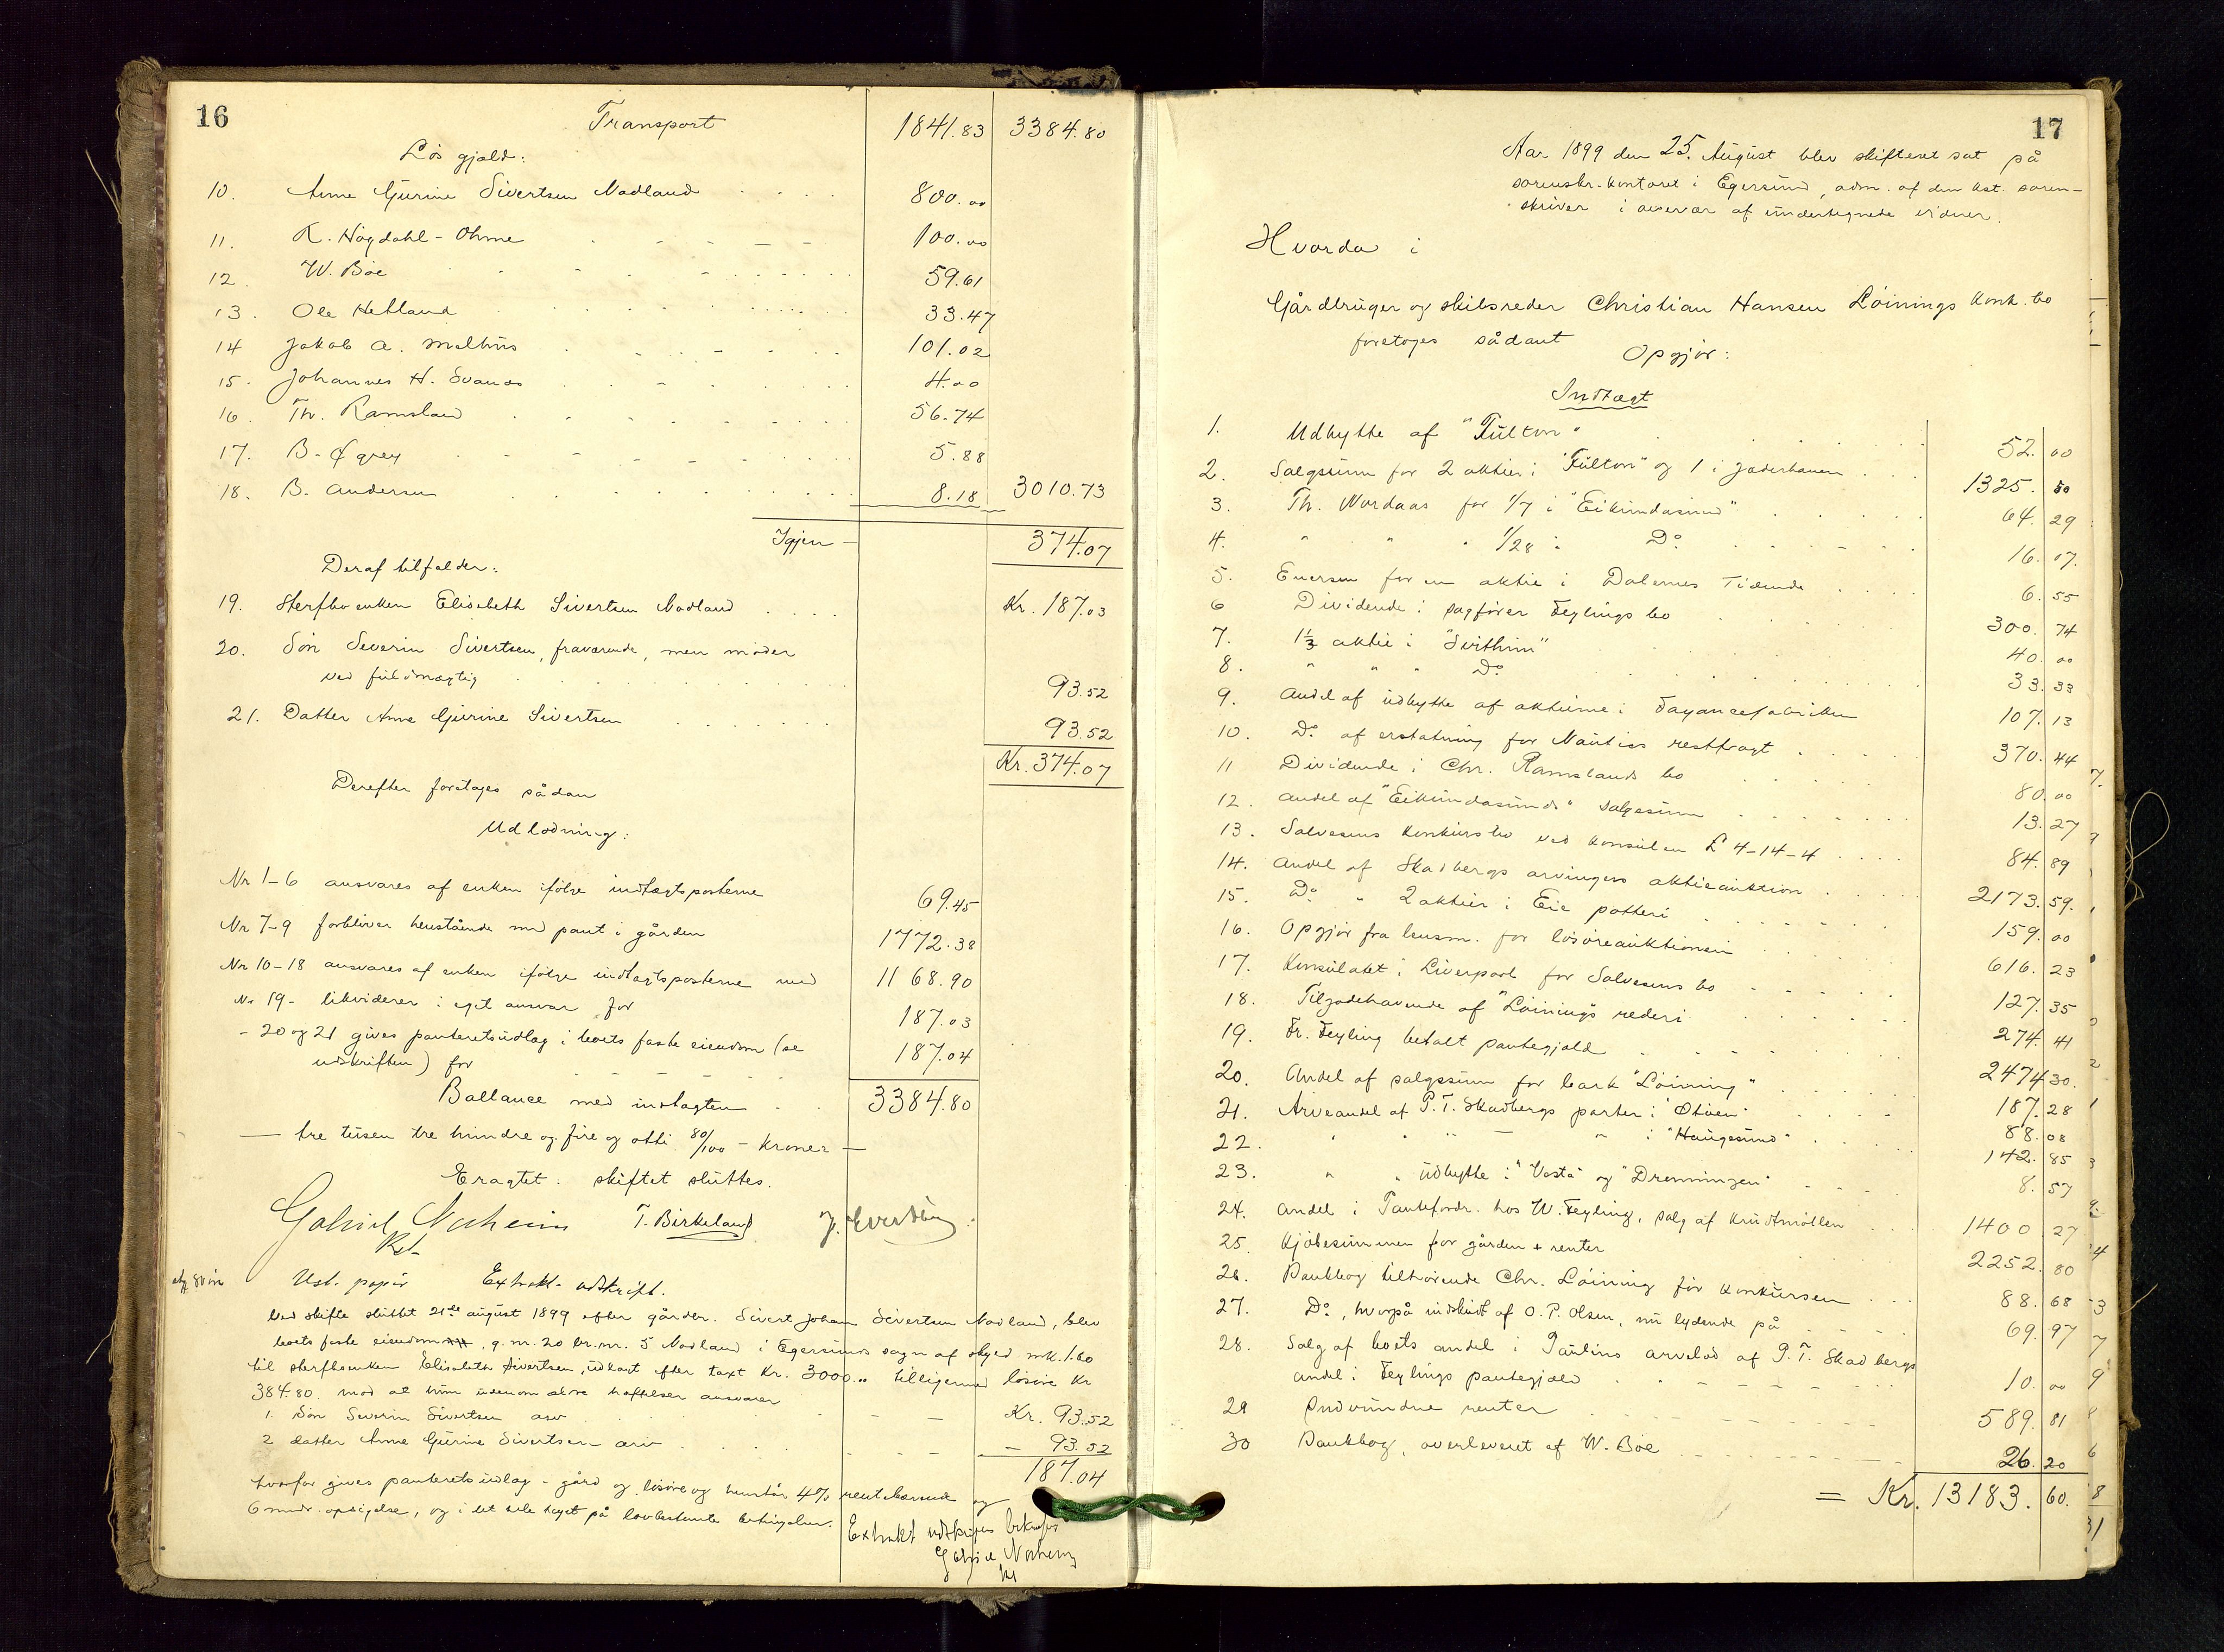 16
Transport 1841.83 3384.80
Løs gjæld:
10. Anne Gurine Sivertsen Nodland 800.00
11. R. Høgdahl-Ohme 100.00
12. W. Böe 59.61
13. Ole Hetland 33.47
14 Jakob A. Mælhus 101.02
15. Johannes H. Svanæs 4.00
16. Th. Ramsland 56.74
17. B. Øgrey 5.88
18. B. Andersen 8.18 3010.73
Igjen 374.07
Deraf tilfalder:
19. Sterfboenken Elisabeth Sivertsen Nodland Kr. 187.03
20. Søn Severin Sivertsen, fraværende, men møder
ved fuldmægtig 93.52
21. Datter Anne Gurine Sivertsen 93.52
Kr. 374.07
Derefter foretages sådan
Udlodning:
Nr 1-6 ansvares af enken ifølge indtægtsposterne 69.45
Nr 7-9 forbliver henstående med pant i gården 1772.38
Nr 10-18 ansvares af enken ifølge indtægtsposterne med 1168.90
Nr 19- likviderer i eget ansvar for 187.03
- 20 og 21 gives panteretsudlæg i boets faste eiendom (se
udskriften) for 187.04
Ballance med indtægten 3384.80
— tre tusen tre hundre og fire og otti 80/100 - kroner —
Eragtet: skiftet sluttes.
Gabriel T. Birkeland
Ust. papir Extrakt-udskrift.
Ved skifte sluttet 21de august 1899 efter gårdbr. Sivert Johan Sivertsen Nodland, blev
boets faste eiendom, g. nr. 20 br. nr. 5 Nodland i Egersunds sogn af skyld mk. 1.60
til sterfboenken Elisabeth Sivertsen, udlagt efter taxt Kr. 3000.00 tilligemed løsøre Kr
384.80 mod at hun udenom heftelser ansvarer
1. Søn Severin Sivertsen arv Kr. 93.52
2 datter Anne Gurine Sivertsen arv — 93.52
187.04
hvorfor gives panteretsudlæg i gård og løsøre og henstår 4% rentebærende og
6 mndr. opsigelse, og i det hele taget på lovbestemte betingelser.
Extrakt udskriften bekræftes
17
Aar 1899 den 25. August blev skifteret sat på
sorenskr. kontoret i Egersund, adm. af den kst. soren-
skriver i overvær af undertegnede vidner.
Hvorda i
Gårdbruger og skibsreder Christian Hansen Löinings konk. bo
foretoges sådant
Opgjör:
Indtægt
1. Udbytte af "Fulton" 52. 00
2. Salgssum for 2 aktier i "Fulton" og 1 i Jæderhaven 1325. 50
3. Th. Wordaas for 1/7 i "Eikundasund" 64. 29
4. " " " 1/28 i Do 16. 07.
5. Enersen for en aktie i Dalernes Tidende 6. 55
6 Dividende i sagfører Feylings bo 300. 74
7. 1 1/3 aktie i "Svithun" 40. 00
8. " " " Do 33. 33
9. Andel af udbytte af aktierne i Fayancefabriken 107. 13
10. Do af erstatning for Nautics restfragt 370. 44
11 Dividende i Chr. Ramslands bo 80. 00
12. Andel af "Eikundasunds" salgssum 13. 27
13. Salvesens konkursbo ved konsulen £ 4-14-4 84. 89
14. Andel af Skadbergs arvingers aktieauktion 2173. 59.
15. Do " 2 aktier i Eie potteri 159. 00
16. Opgjör fra lensm. for løsøreauktionen 616. 23
17. Konsulatet i Liverpool for Salvesens bo 127. 35
18. Tilgodehavende af "Löinings" rederi 274. 41
19. Fr. Feyling betalt pantegjæld 2474 30.
20. Andel af salgssum for bark "Löining" 187. 28
21. Arveandel af P. T. Skadbergs parter i "Otiven" 88. 08
22. " " " — " i "Haugesund" 142. 85
23. " " udbytte i "Vesta" og "Dronningen" 8. 57
24. Andel i Pantefordr. hos W. Feyling, salg af Krudtmøllen 1400 27
25. Kjöbesummen for gården + renter 2252. 80
26. Bankbog tilhørende Chr. Löining för konkursen 88. 68
27. Do, hvorpå indskudt af O. P. Olsen, nu lydende på 69. 97
28. Salg af boets andel i Paulins arvelod af P. T. Skadbergs
andel i Feylings pantegjæld 10. 00
29 Indvundne renter 589. 81
30 Bankbog, overleveret af W. Böe 26. 20
= Kr. 13183. 60.